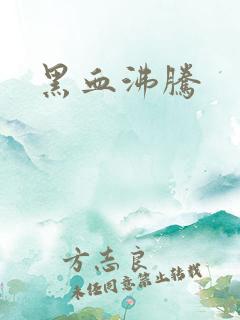 黑血沸騰
方志良
未经同意禁止转载